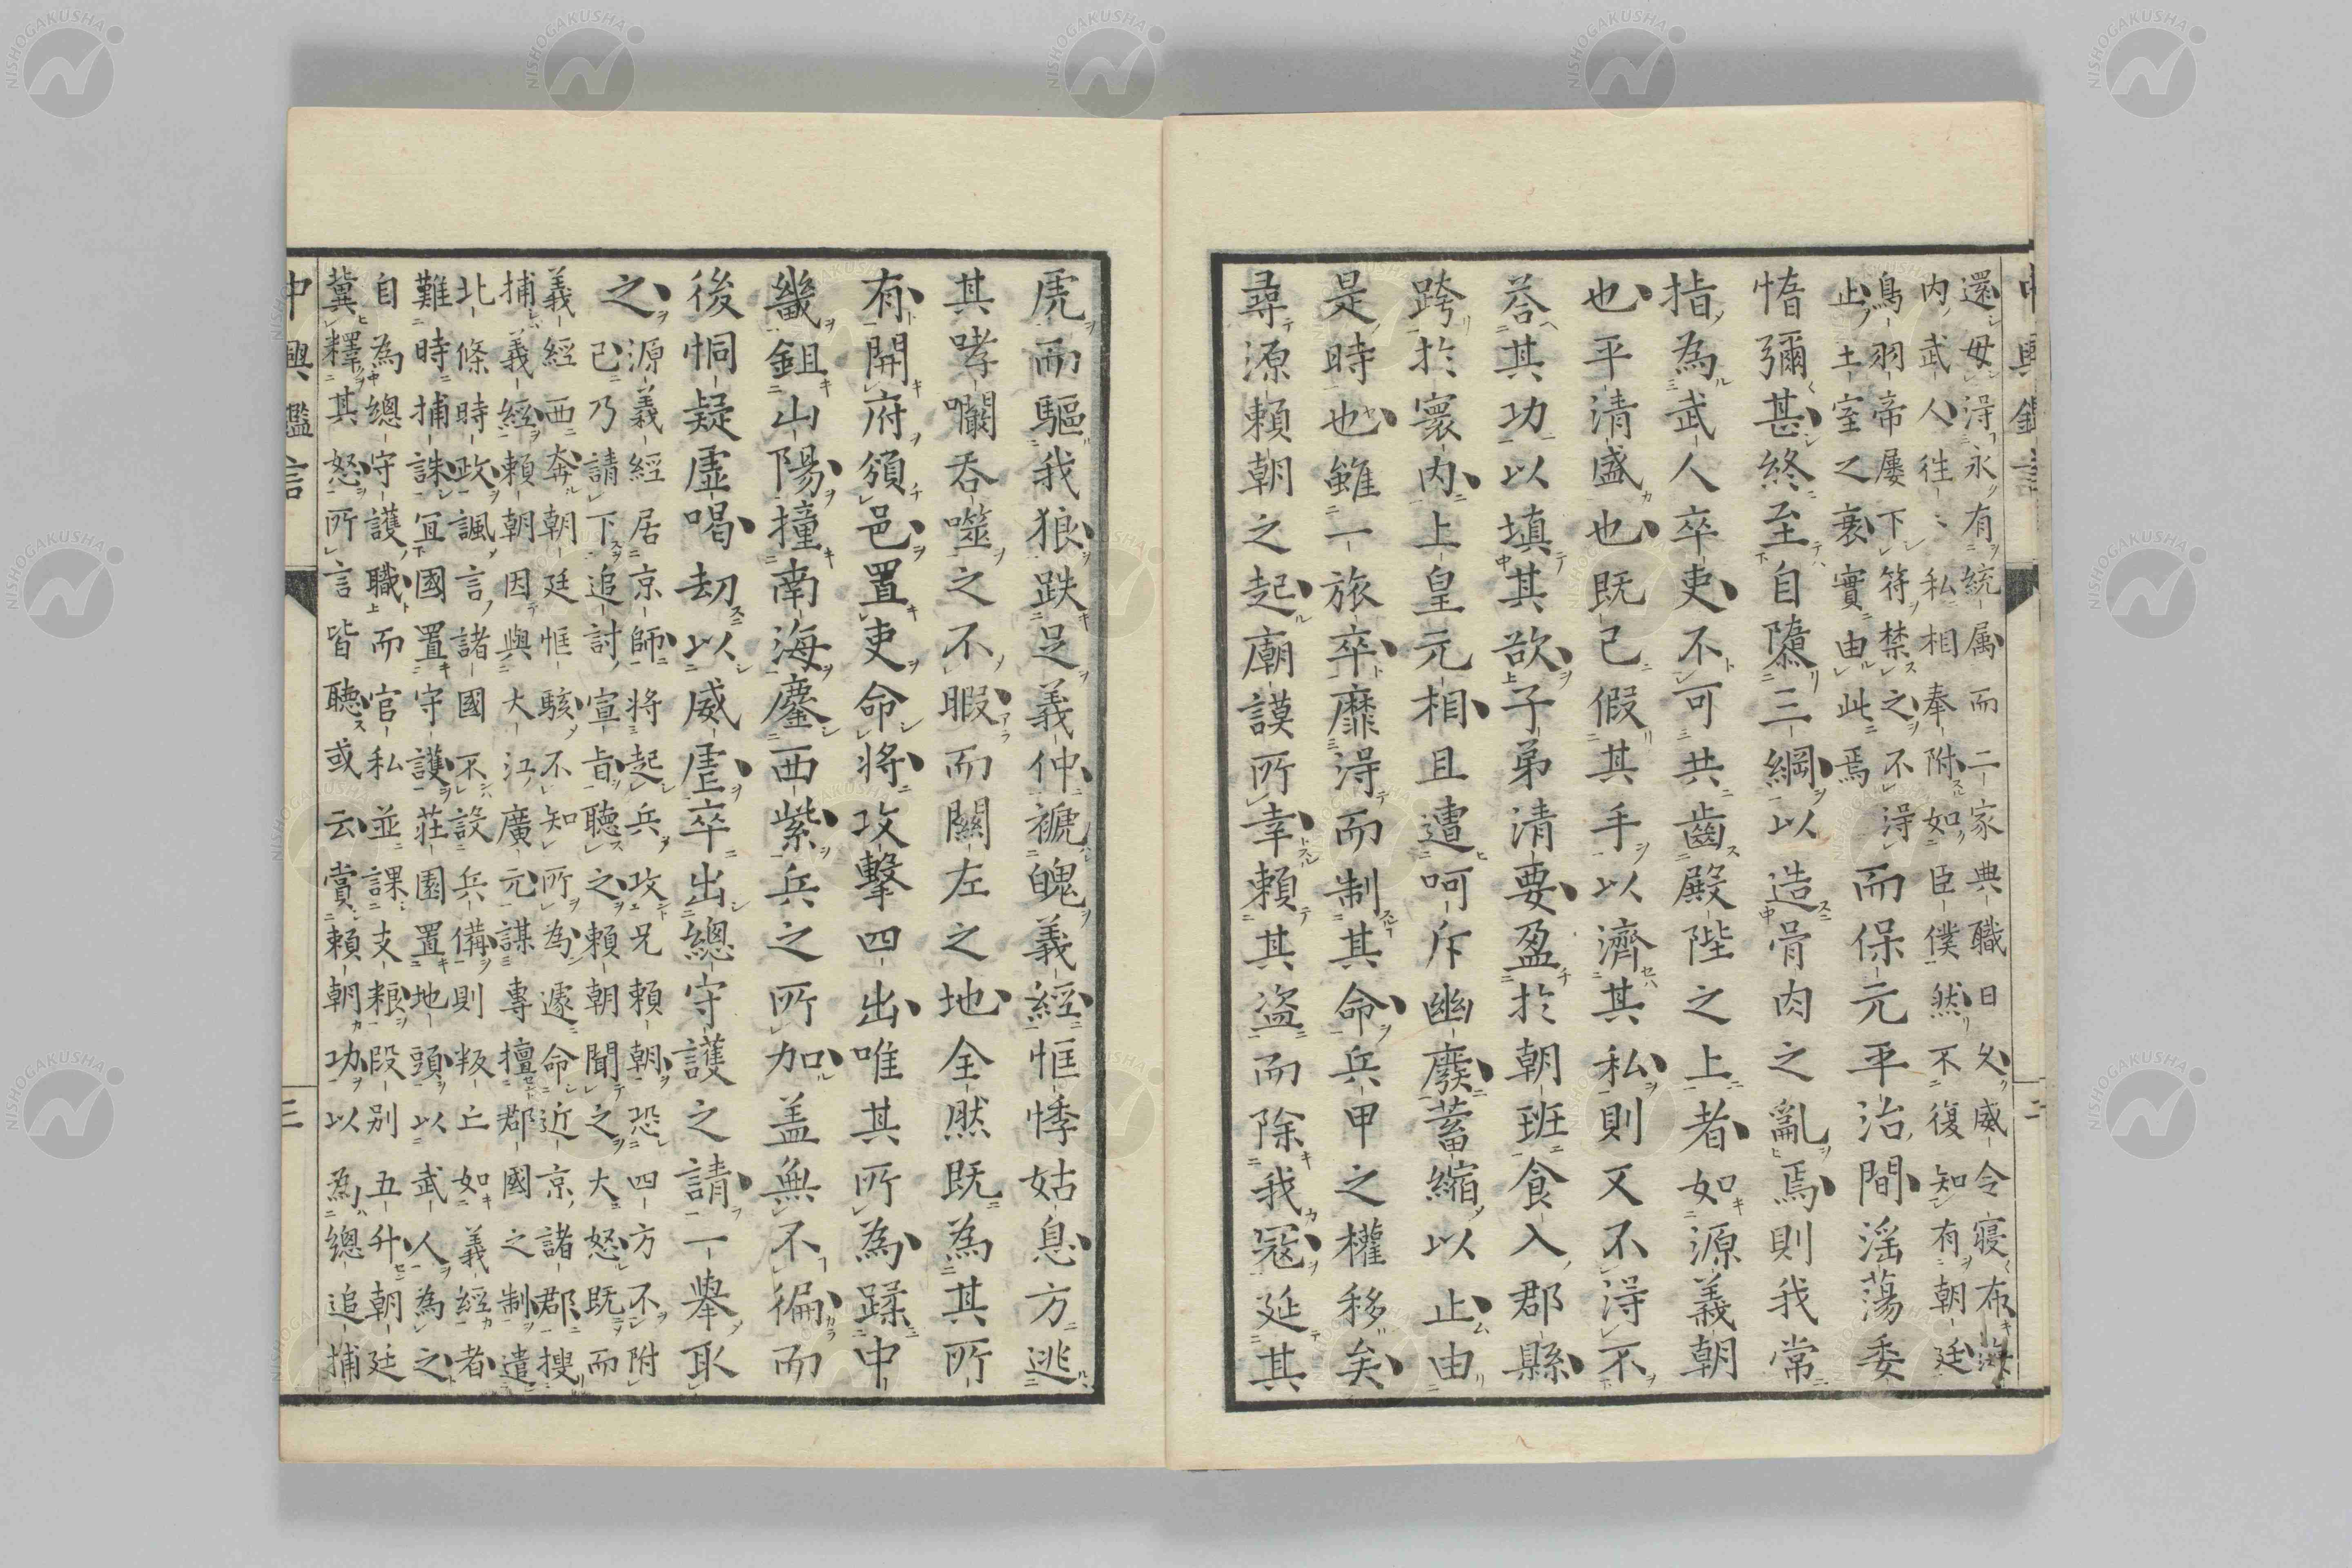 還毋得永有統属而二家典職日久威令寝布海
内武人往〻私相奉附如臣僕然不復知有朝廷
鳥羽帝屢下符禁之不得
止土室之衰實由此焉
而保元平治間淫蕩委
惰彌甚終至自隳三綱以造骨肉之亂焉則我常
指為武人卒吏不可共齒殿陛之上者如源義朝
也平清盛也既已假其手以濟其私則又不得不
荅其功以填其欲子弟清要盈於朝班食入郡縣
跨於寰内上皇元相且遭呵斥幽廢蓄縮以止由
是時也雖一旅卒靡得而制其命兵甲之權移矣
尋源頼朝之起廟謨所幸頼其盗而除我冦延其
虎而驅我狼跌足義仲褫魄義經恇悸姑息方逃
其哮㘚呑噬之不暇而關左之地全然既為其所
有開府頒邑置吏命將攻擊四出唯其所為蹂中
畿鉏山陽撞南海鏖西紫兵之所加盖無不徧而
後恫疑虚喝刧以威虐卒出總守護之請一舉取
之
源義經居京師將起兵攻兄頼朝恐四方不附
已乃請下追討宣旨聽之頼朝聞之大怒既而
義經西奔朝廷恇駭不知所為遽命近京諸郡搜
捕義經頼朝因與大江廣元謀專擅郡國之制遣
北條時政諷言諸國不設兵備則叛亡如義經者
難時捕誅宜國置守護莊園置地頭以武人為之
自為總守護職而官私並課支粮段別五升朝廷
冀釋其怒所言皆聽或云賞頼朝功以為總追捕
中興鑑言
三